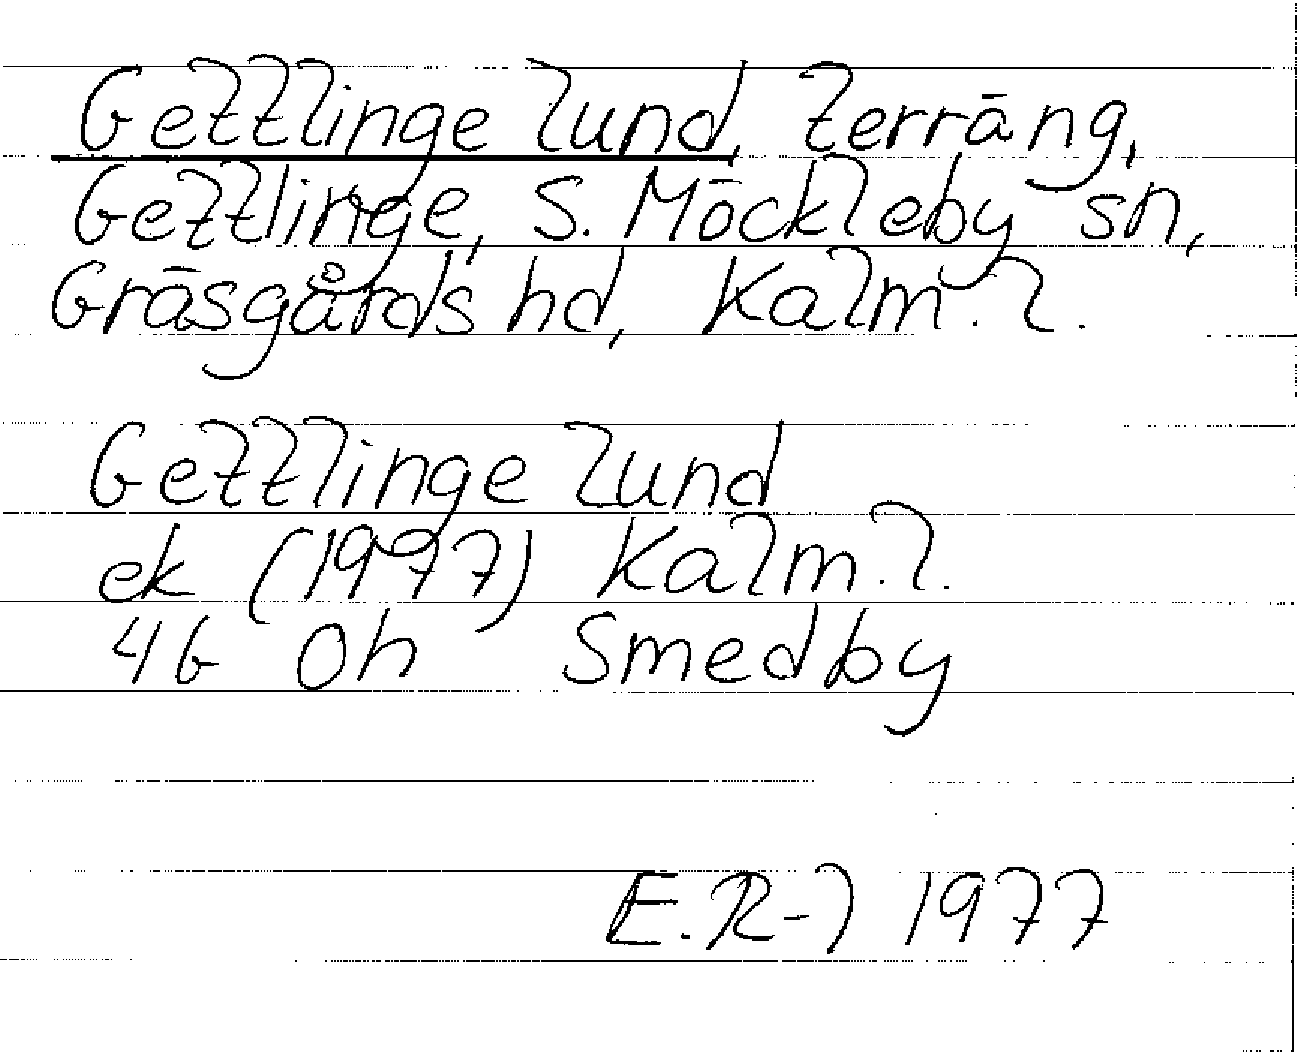 Gettlinge lund, terräng,
Gettlinge, S. Möckleby sn,
Gräsgårds hd, Kalm. l.
Gettlinge lund
ek (1977) Kalm. l.
4G 0h Smedby
E. R-l 1977